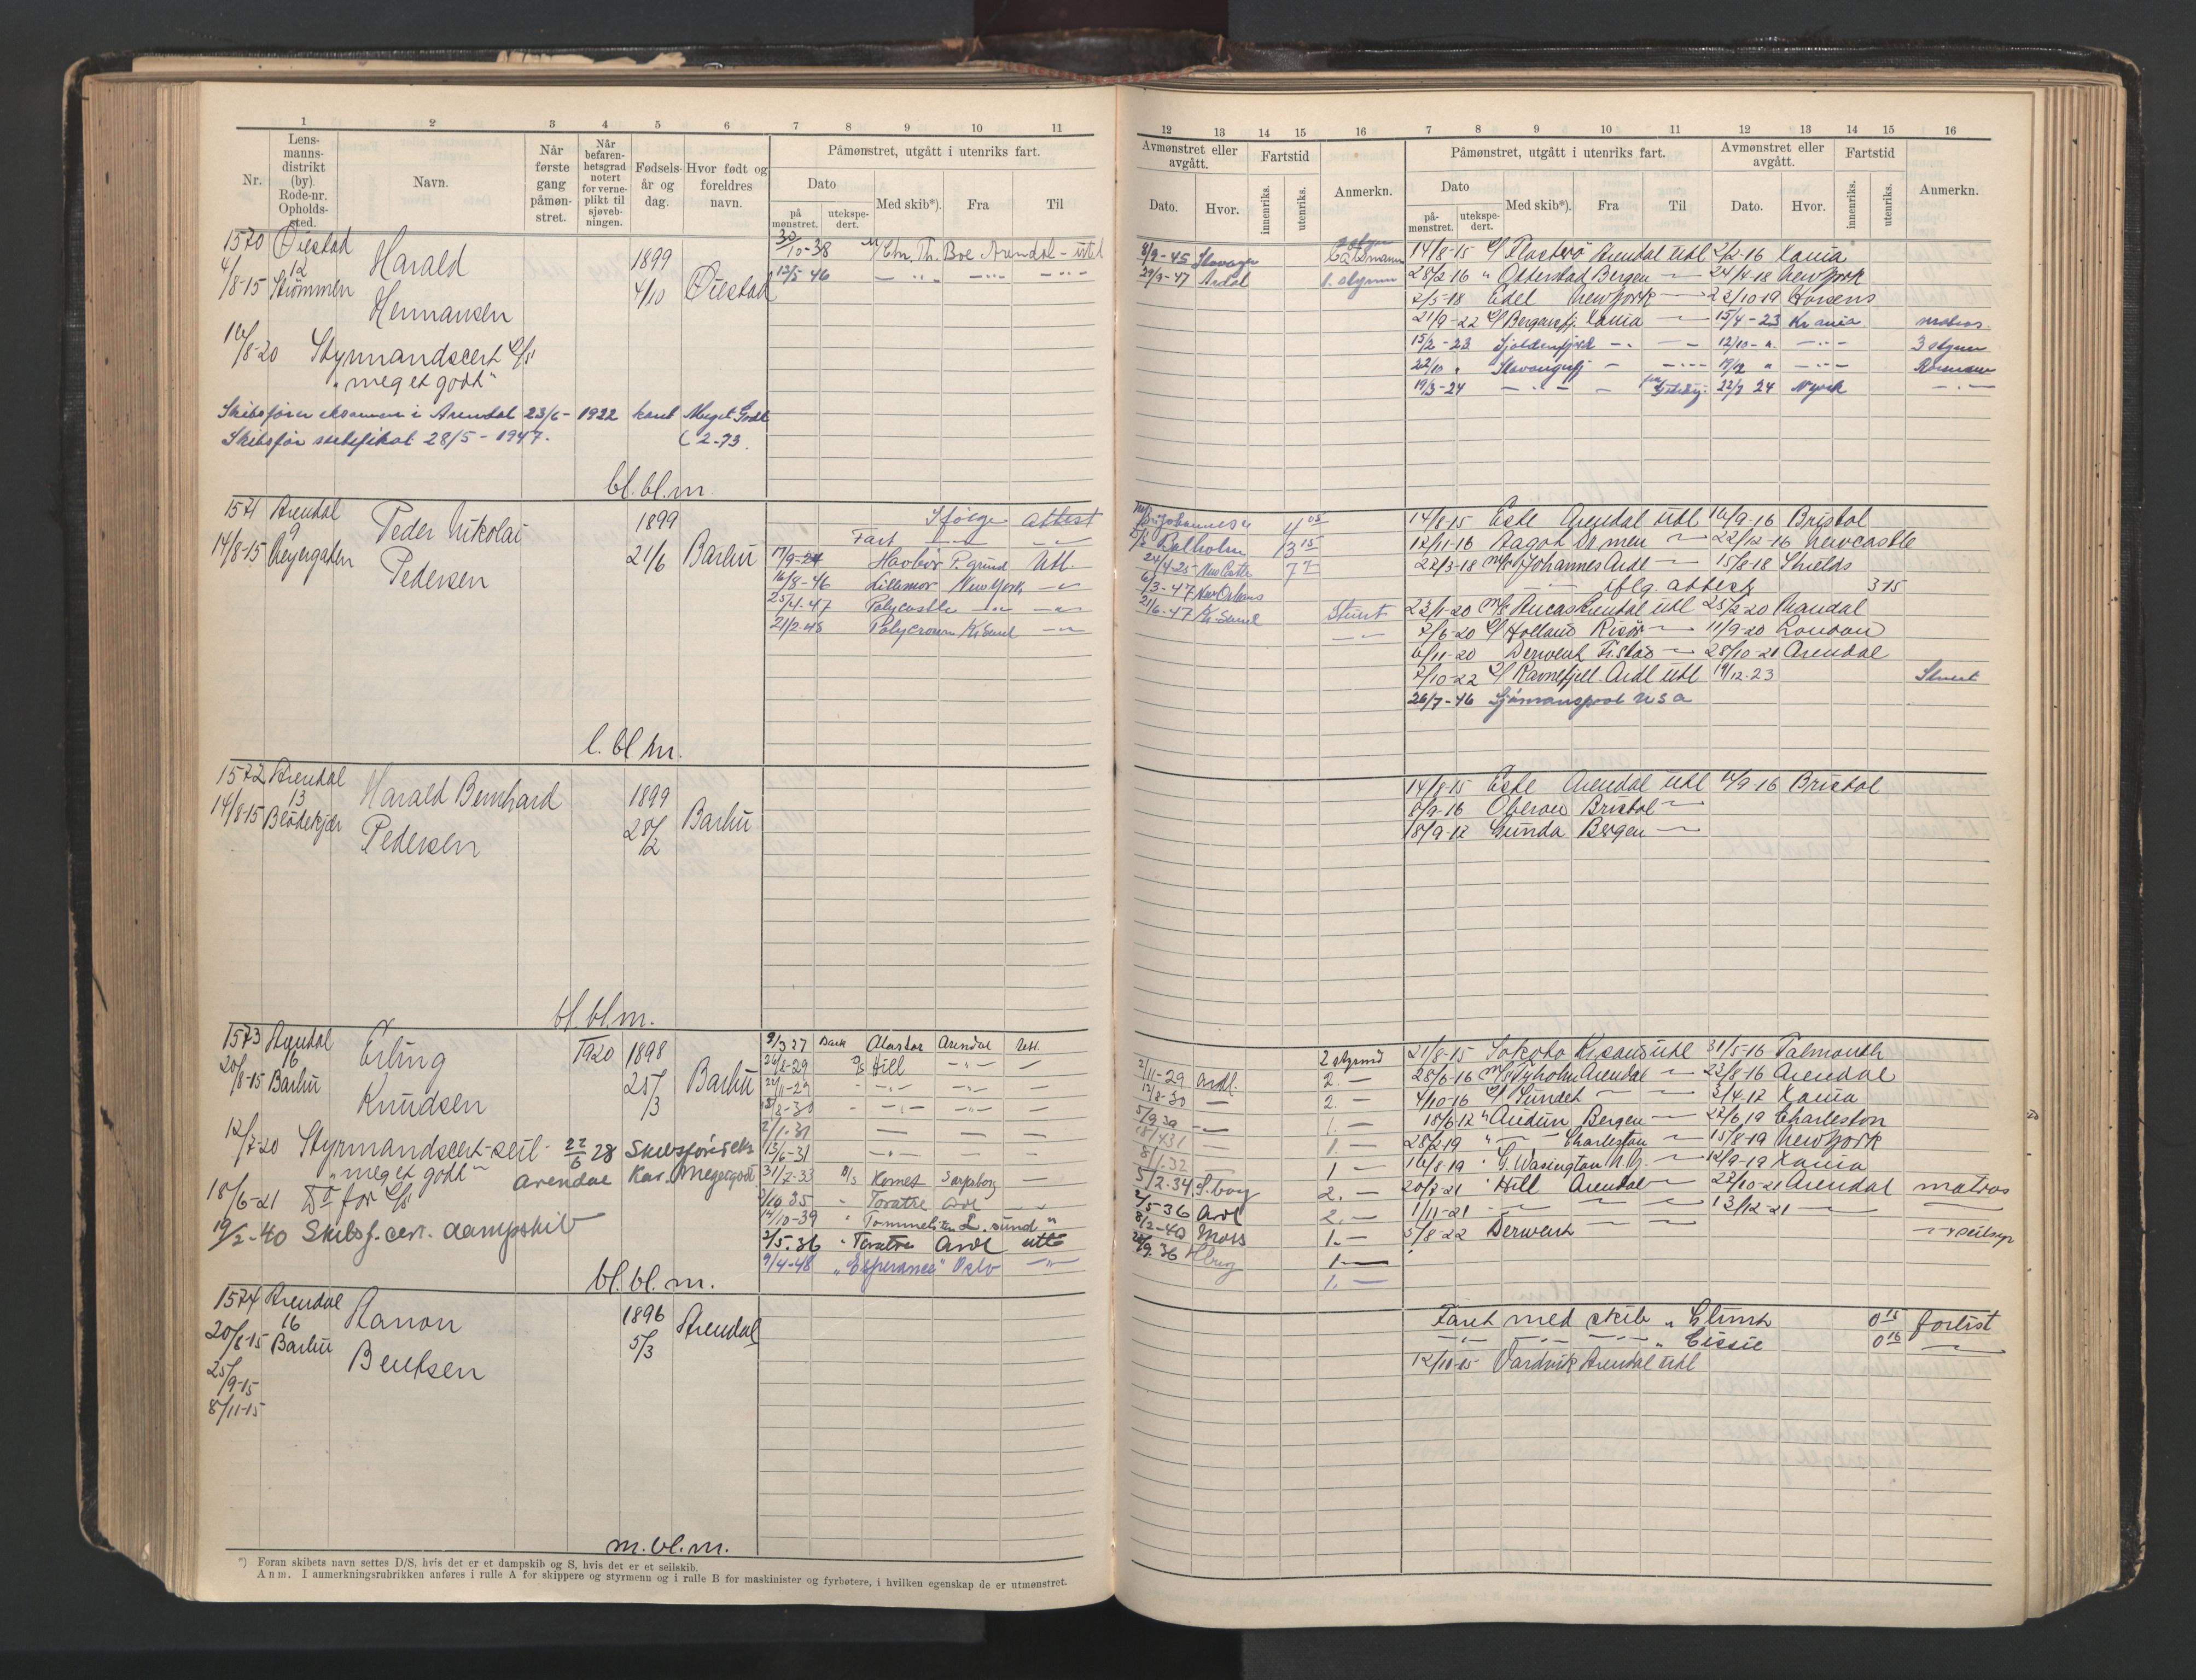 1 2 3 4 5 6 7 8 9 10 11
Nr.
Lens-
manns-
distrikt
(by).
Rode-nr.
Opholds-
sted.
Navn.
Når
første
gang
påmøn-
stret.
Når
befaren-
hetsgrad
notert
for verne-
plikt til
sjøveb-
ningen.
Fødsels-
år og
dag.
Hvor født og
foreldres
navn.
Påmønstret, utgått i utenriks fart.
Dato
på
mønstret.
utekspe-
dert.
Med skib*).
Fra
Til
1570 Øiestad
12
4/8-15 Strømmen
Harald
Hermansen
1899
4/10
Øiestad
30/10-38 M/ Chr. Th. Boe Arendal - utl
13/5 46 — „ —„— —„—
16/8-20 Styrmandscert S/S
„meget godt“
Skibsfører eksamen i Arendal 23/6- 1922 kar. Meget Godt
Skibsfør sertifikat 28/5 - 1947. ( 2-73.
bl. bl. m.
1571 Arendal
9
14/8-15
Peder Nikolai
Pedersen
1899
21/6
Barbu
Ifølge attest
Fart
17/9-24 Havbør P.grund Utl.
16/8-46 Lillemor New York —„—
25/4.47 Polycastle —„— —„—
21/2-48 Polycrown Kr.Sund —„—
l. bl m.
1572 Arendal
13
14/8-15 Blødekjær
Harald Bernhard
Pedersen
1899
28/2
Barbu
bl. bl. m.
1573 Arendal
16
20/8-15 Barbu
Erling
Knudsen
1920
1898
25/3
Barbu
9/3 27 Bark Alastor Arendal Utl.
26/8-29 D/S Hill —„— —
22/11-29 —„— —„— —
15/8-30 —„— —„— —
2/1-31 — — —
13/6-31 —„— — —
31/7-33 D/S Komet Sarpsborg —
Toratre Ardl
14/10-39 „ Tommeliten L.sund „
2/5.36 „ Toratre Ardl utl
9/4-48 „Esperance“ Oslo —„—
12/7-20 Styrmandscert-seil - 22/6 28 Skibsførereks
„meget godt“ Arendal Kar. Megetgodt
18/6-21 Do for S/S
19/2-40 Skibsf. cert. dampskib
bl. bl. m.
1574 Arendal
16
20/8-15 Barbu
25/9-15
8/11-15
Aanon
Bentsen
1896
5/3
Arendal
m. bl. m.
*) Foran skibets navn settes D/S, hvis det er et dampskib og S, hvis det er et seilskib.
Anm. I anmerkningsrubrikken anføres i rulle A for skippere og styrmenn og i rulle B for maskinister og fyrbøtere, i hvilken egenskap de er utmønstret.
12 13 14 15 16 7 8 9 10 11 12 13 14 15 16
Avmønstret eller
avgått.
Dato.
Hvor.
Fartstid
innenriks.
utenriks.
Anmerkn.
Påmønstret, utgått i utenriks fart.
Dato
på-
mønstret.
utekspe-
dert.
Med skib*).
Fra
Til
Avmønstret eller
avgått.
Dato.
Hvor.
Fartstid
innenriks.
utenriks.
Anmerkn.
8/9-45 Stavanger
29/3-47 Ardal 1. styrm
14/8-15 S/S Flesterø Arendal utl 2/2-16 Xania
28/2-16 „ Otterstad Bergen — 24/4-18 New York
2/5-18 Edel New York — 22/10-19 Horsens
21/9-22 S/S Bergensfj. Xania — 15/4-23 Kr ania matros
15/2-23 — — 12/10- „ —„— 3 styrm
22/10 „ Stavangerfj — —„— 19/12 „ —„—
19/3-24 —„— — 22/8 24 N york —„—
Johannes 4 08
Balholm 13 15
24/4-25 New Castle 7 7
6/3-47 New Orleans
21/6-47 Kr.Sund Stuert
—„—
14/8-15 Este Arendal utl 16/9-16 Bristol
12/11-16 Aagot Drmen — 22/12-16 Newcastle
22/3-18 Johannes Ardl — 15/8-18 Shields
iflg. attest 3-15
23/1-20 Arendal utl 25/2-20 Mandal
2/6-20 S/S Holland Risør — 11/9-20 London
6/11-20 Derwent Fr.stad — 28/10-21 Arendal
2/10-22 S/S Ravnefjell Ardl utl 19/12-23 Stuert
26/7-46 Sjømanspool USA
14/8-15 Este Arendal utl 16/9-16 Bristol
8/9-16 Oberon Bristol —
18/9-17 Gunda Bergen —
2 styrmd
2/11-29 Ardl. 2. —
12/8-30 — 2. —
5/9 30 — 1. —
18/4 31 — 1. —
8/1.32 1 —
5/2.34 S.borg 2. —
2/5-36 Ardl 2. —
8/2-40 Moss 1. —
Hbrg 1 —
1. —
21/8-15 Sokoto Kr.sand utl 31/5-16 Falmouth
28/6-16 Tyholm Arendal — 23/8-16 Arendal
4/10-16 S/S Sundet — — 3/4-17 Xania
18/6-17 „ Audun Bergen — 22/6 19 Charleston
28/2-19 „ — Charleston — 15/8-19 New York
16/8-19 „ G. Wasington N.Y. — 12/9-19 Xania
20/8-21 „ Hill Arendal — 22/10-21 Arendal matros
1/11-21 — — — 13/12-21 — —
5/8-22 Derwent — —
Faret med skib „ Glimt 0 15 forlist
—„— —„— —„— „ Cissie 0 16 —
12/10-15 Vardvik Arendal utl